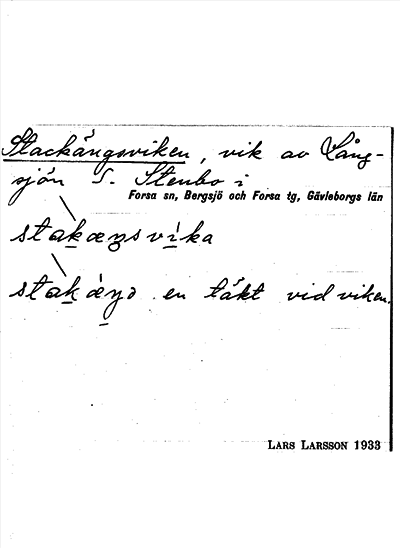 Stackängsviken, vik av Lång-
sjön S. Stenbo i
Forsa sn, Bergsjö och Forsa tg, Gävleborgs län
stakæŋsvìka
stakæ̀ŋə en täkt vid viken.
LARS LARSSON 1933